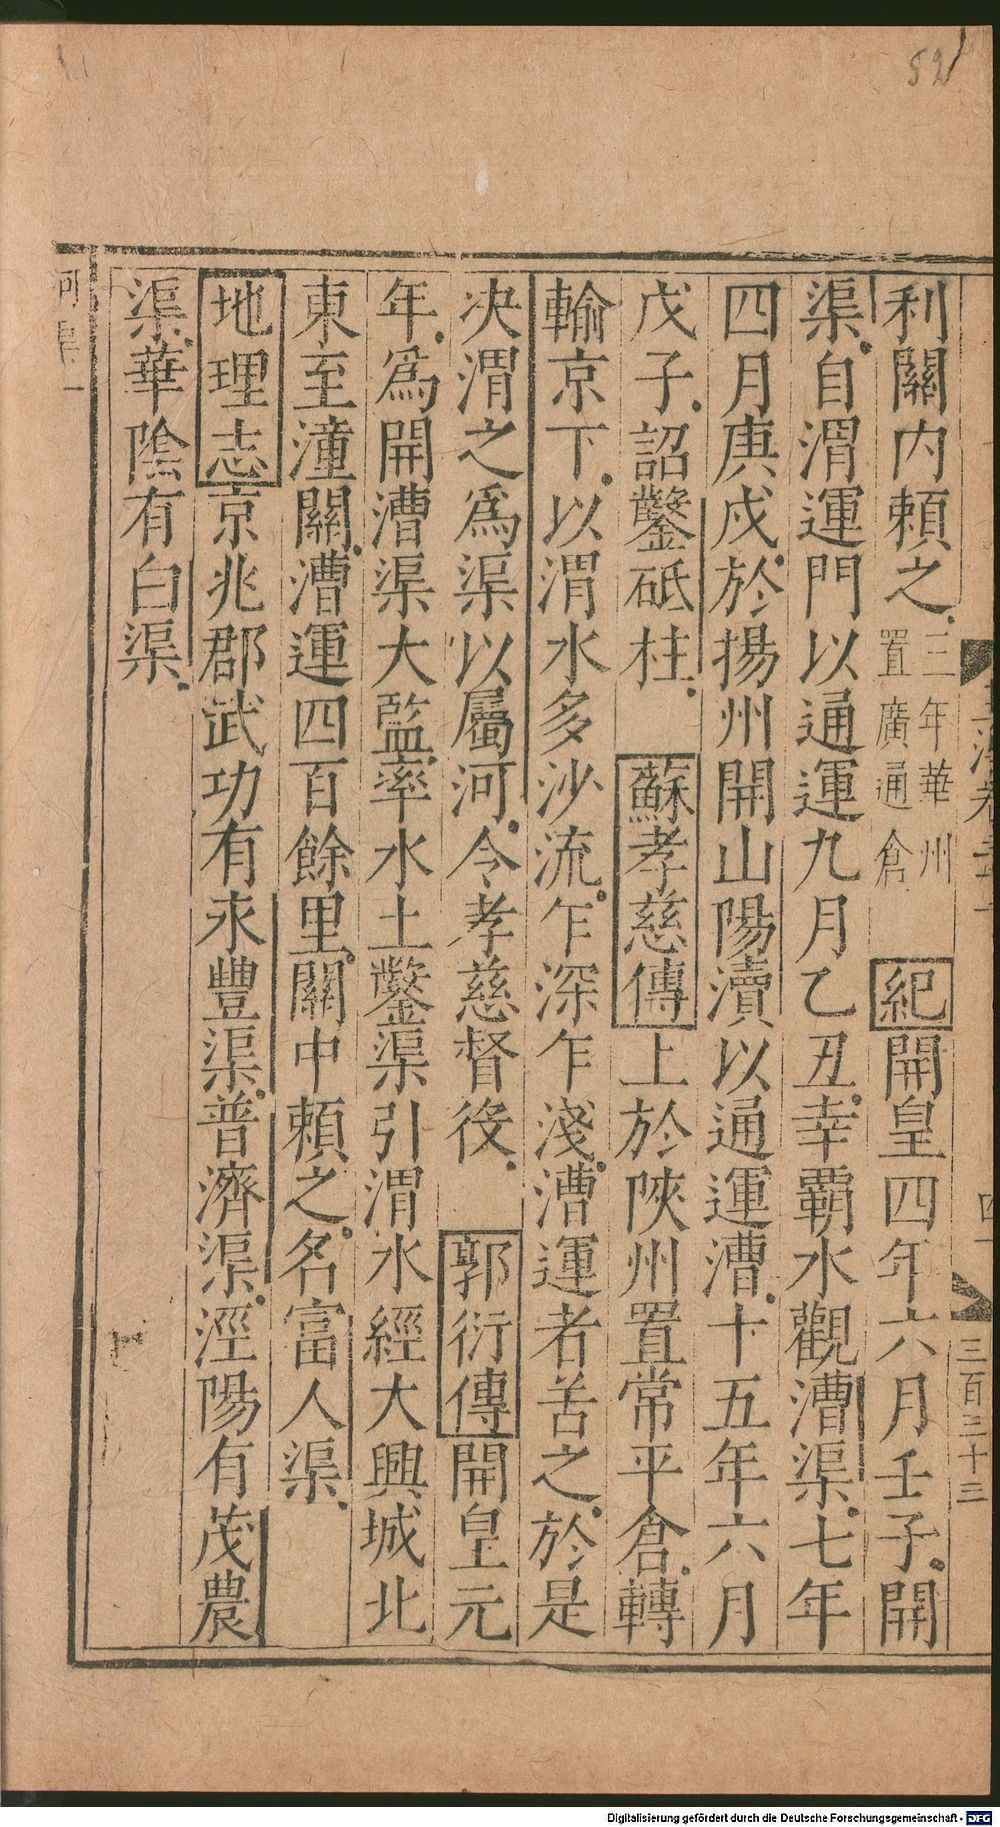 52
利關内頼之三年華州
置廣通倉紀開皇四年六月壬子開
渠自渭運門以通運九月乙丑幸覇水觀漕渠七年
四月庚戌於揚州開山陽瀆以通運漕十五年六月
戊子詔鑿砥柱蘇孝慈傳上於陜州置常平倉轉
輸京下以渭水多沙流乍深乍淺漕運者苦之於是
决渭之爲渠以屬河令孝慈督役郭衍傳開皇元
年爲開漕渠大監率水土鑿渠引渭水經大興城北
東至潼關漕運四百餘里關中頼之名富人渠
地理志京兆郡武功有永豐渠普濟渠涇陽有茂農
渠華陰有白渠
三百三十三
Digitalisierung gefördert durch die Deutsche Forschungsgemeinschaft - DFG